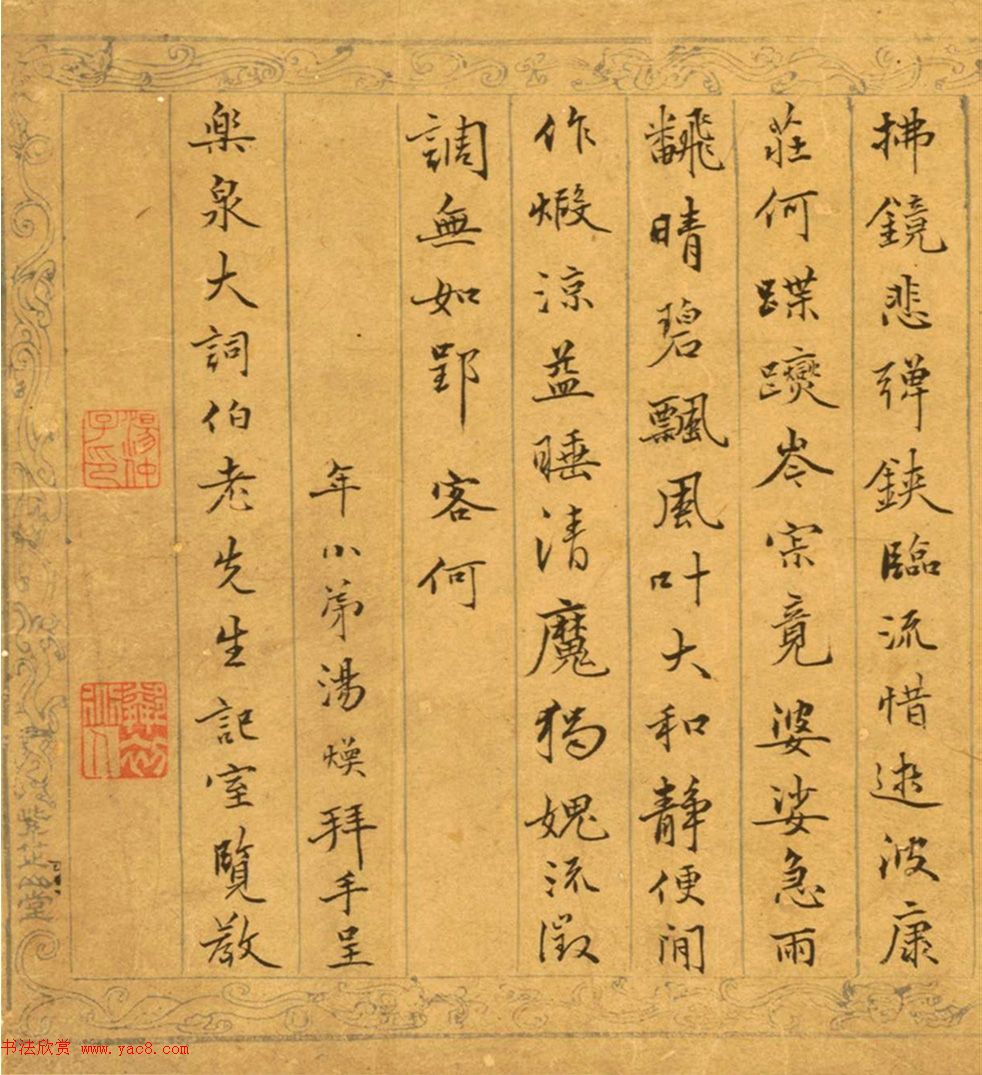 拂鏡悲彈鋏臨流惜逝波康
莊何蹀躞岑寂竟婆娑急雨
飜晴碧飄風叶大和靜便閒
作煅涼益睡清魔獨媿流徵
調無如郢客何
年小弟湯煥拜手呈
樂泉大詞伯老先生記室覽教
湯仲子氏印
紫芝堂
书法欣赏 www.yac8.com